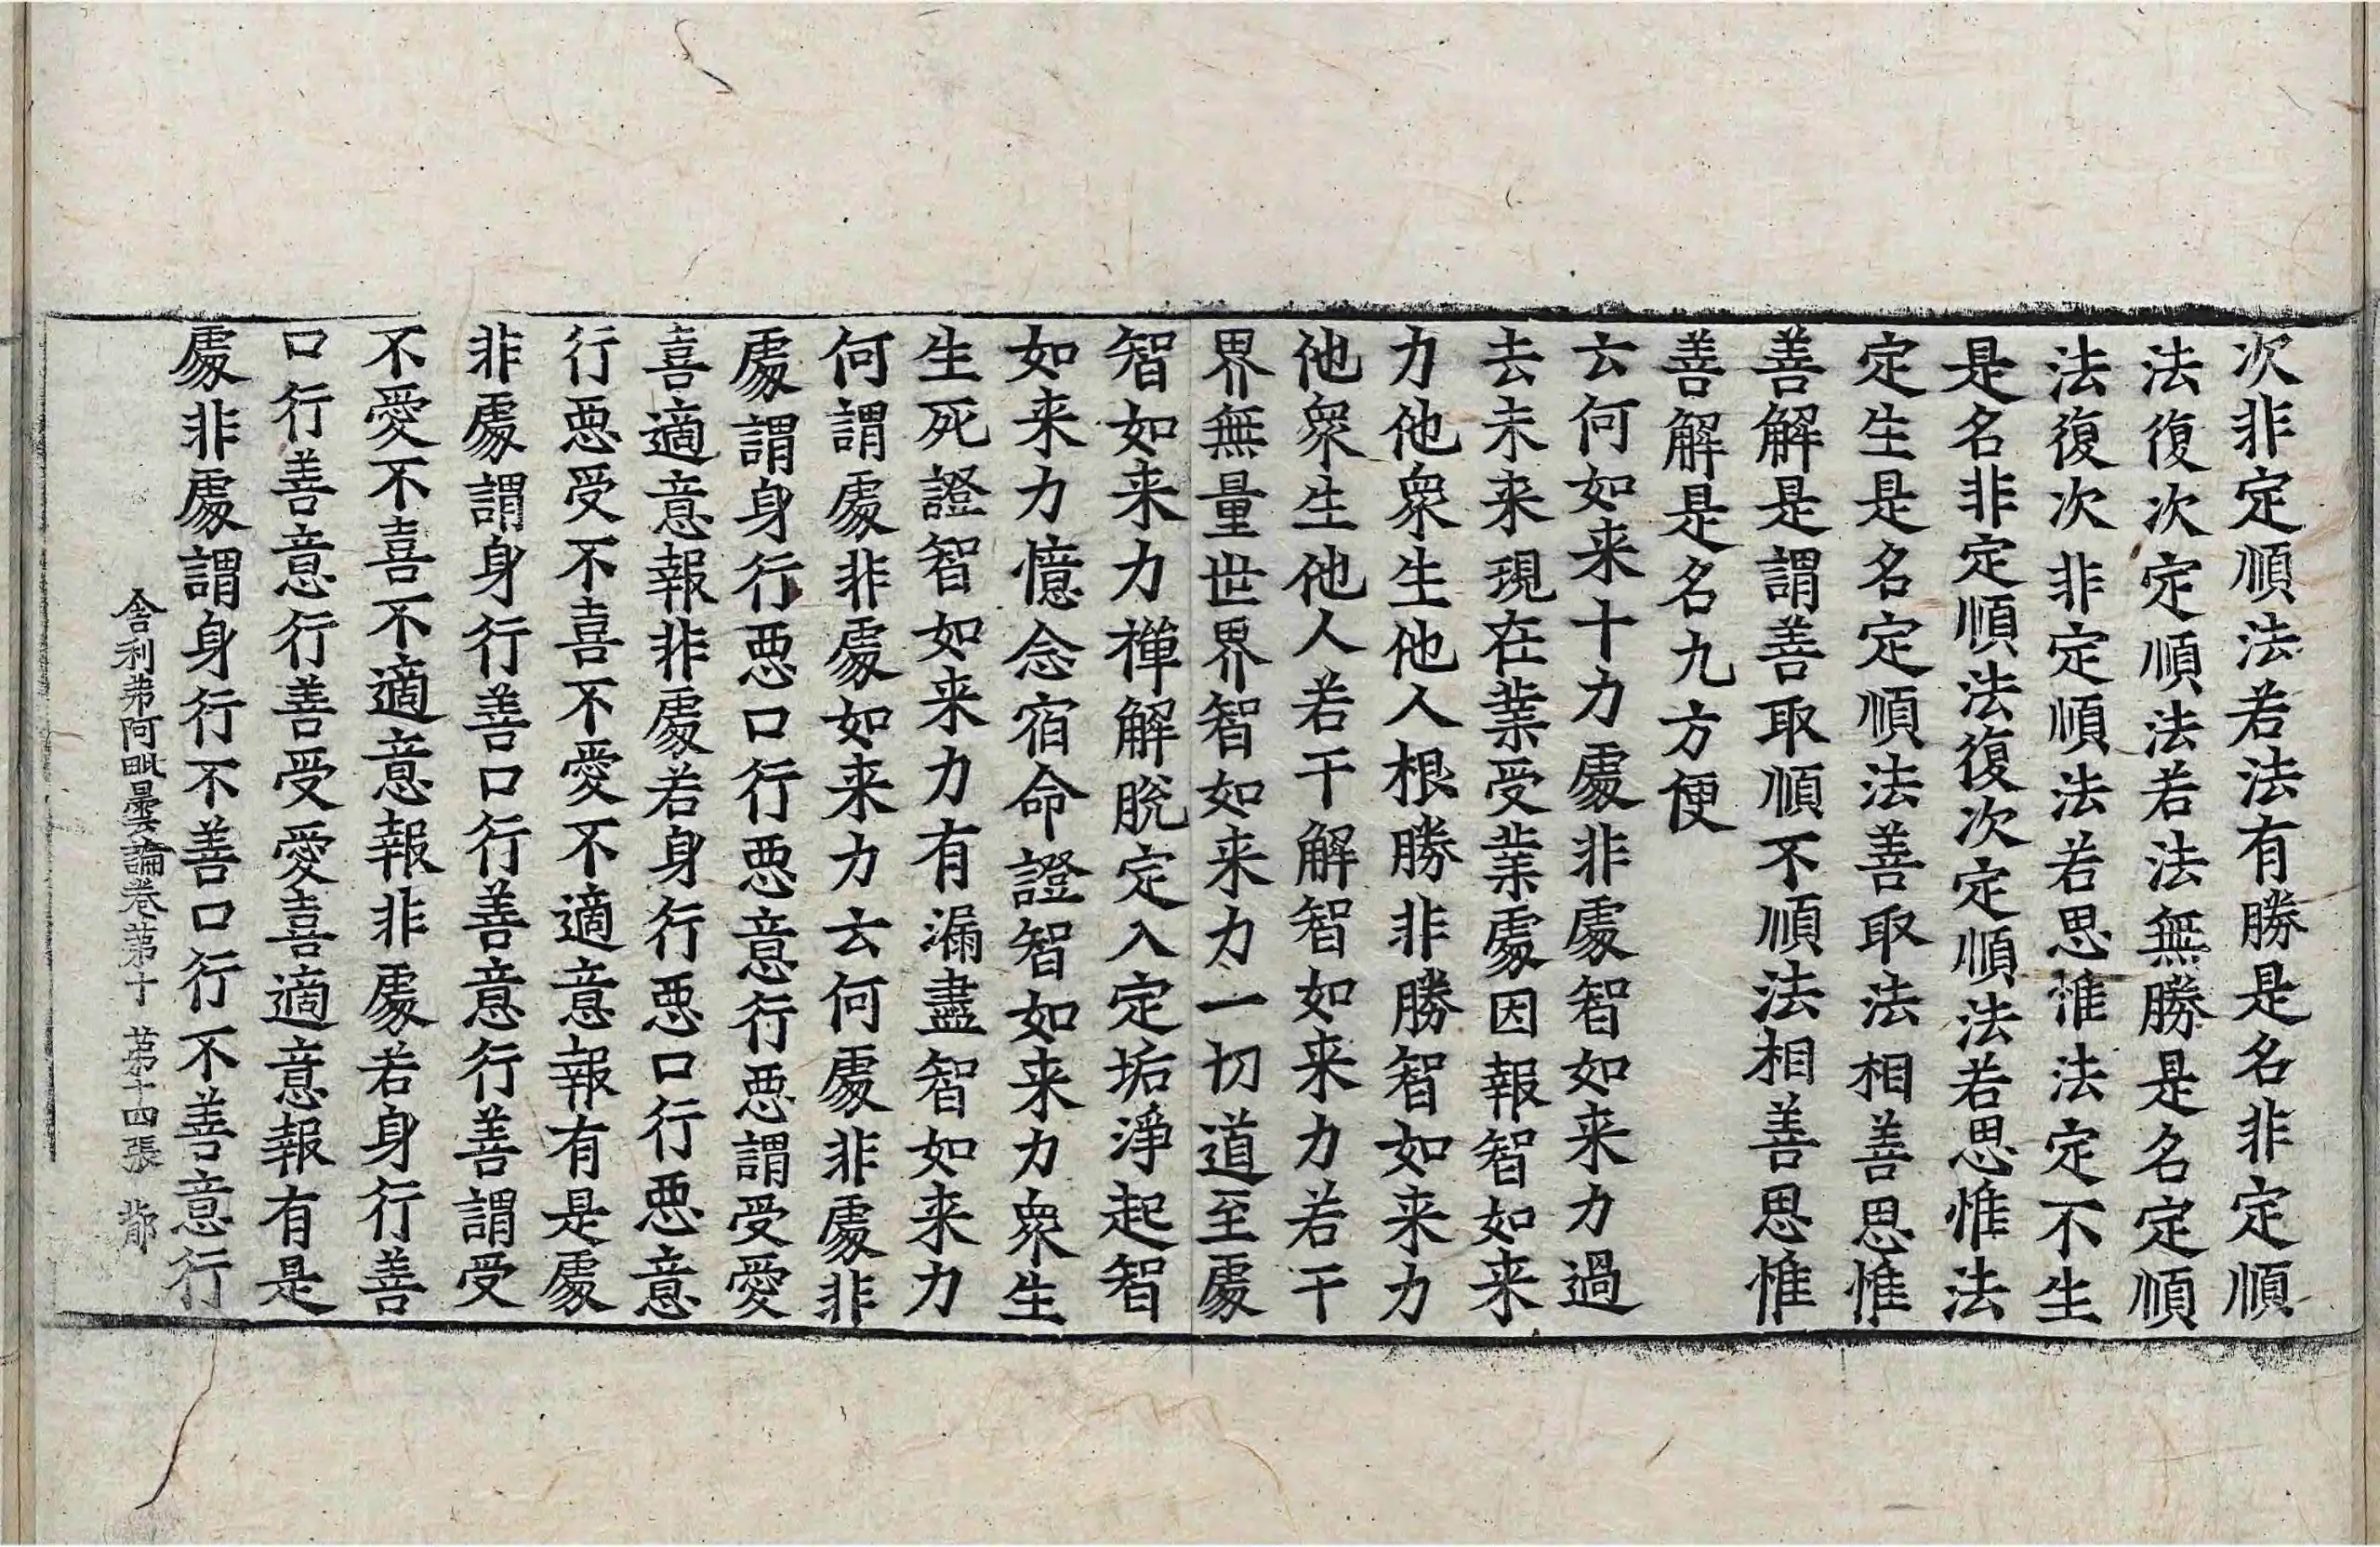 次非定順法若法有勝是名非定順
法復次定順法若法無勝是名定順
法復次非定順法若思惟法定不生
是名非定順法復次定順法若思惟法
定生是名定順法善取法相善思惟
善解是謂善取順不順法相善思惟
善解是名九方便
云何如来十力處非處智如来力過
去未来現在業受業處因報智如来
力他衆生他人根勝非勝智如来力
他衆生他人若干解智如来力若干
界無量世界智如来力一切道至處
智如来力禅解脫定入定垢淨起智
如来力憶念宿命證智如来力衆生
生死證智如来力有漏盡智如来力
何謂處非處如来力云何處非處非
處謂身行惡口行惡意行惡謂受愛
喜適意報非處若身行惡口行惡意
行惡受不喜不愛不適意報有是處
非處謂身行善口行善意行善謂受
不愛不喜不適意報非處若身行善
口行善意行善受愛喜適意報有是
處非處謂身行不善口行不善意行
舍利弗阿毗曇論卷第十 第十四張